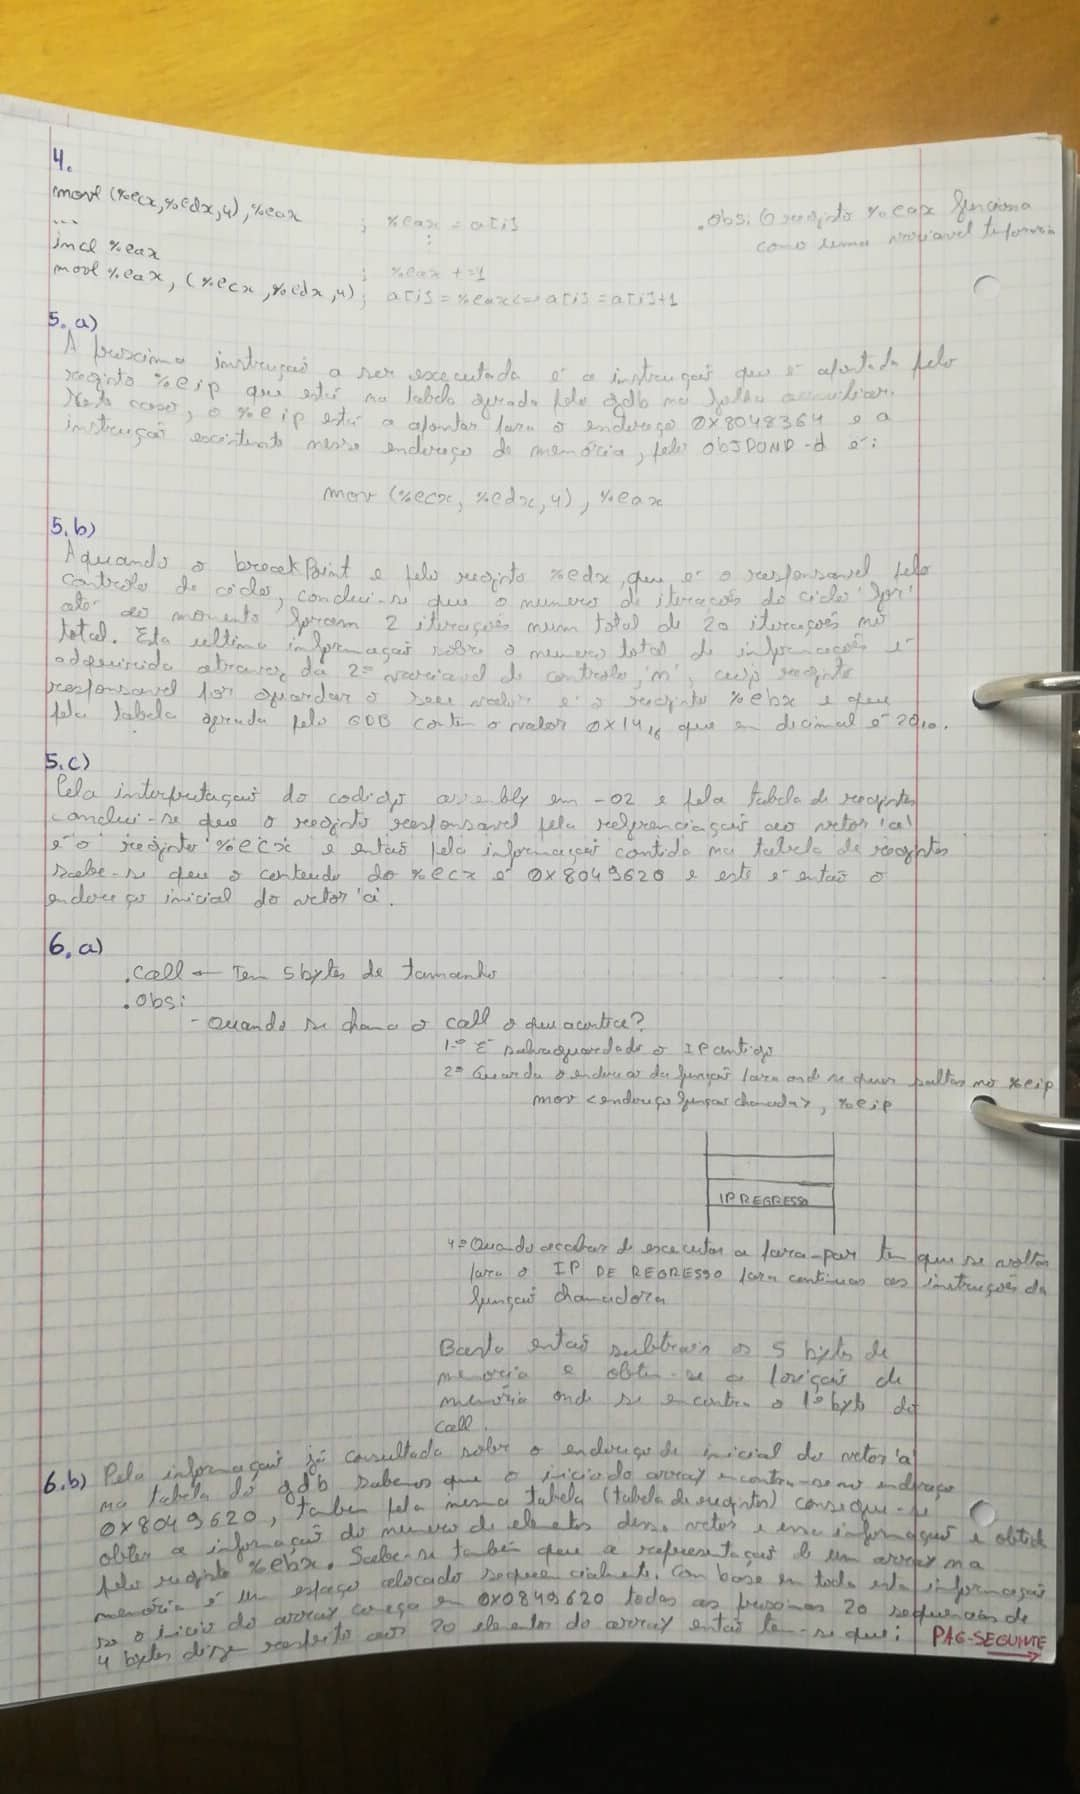 4.
movl (%ecx,%edx,4),%eax ; %eax = a[i]
... :
incl %eax ; %eax +=1
movl %eax, (%ecx,%edx,4); a[i] = %eax <=> a[i] = a[i]+1
.Obs: O registo %eax funciona
como uma variavel temporaria
5. a)
A proxima instrução a ser executada é a instrução que é apontada pelo
registo %eip que está na tabela gerada pelo gdb na folha auxiliar.
Neste caso, o %eip está a apontar para o endereço 0x8048364 e a
instrução existente nesse endereço de memória, pelo OBJDUMP -d é:
mov (%ecx, %edx,4), %eax
5.b)
Aquando o breakPoint e pelo registo %edx, que é o responsavel pelo
controlo do ciclo, conclui-se que o numero de iterações do ciclo 'for'
até ao momento foram 2 iterações num total de 20 iterações no
total. Esta ultima informação sobre o numero total de informações é
adquirida atravez da 2ª variavel de controlo, 'n', cujo registo
responsavel por guardar o seu valor é o registo %ebx e que
pela tabela gerada pelo GDB contém o valor 0x14₁₆ que em decimal é 20₁₀.
5.c)
Pela interpretação do codigo assembly em -O2 e pela tabela de registos
conclui-se que o registo responsavel pela referenciação ao vetor 'a'
é o registo %ecx e então pela informação contida na tabela de registos
sabe-se que o conteudo do %ecx é 0x8049620 e este é então o
endereço inicial do vetor 'a'.
6.a)
.call ← Tem 5 bytes de tamanho
.Obs:
- Quando se chama o call o que acontece?
1º É salvaguardado o IP antigo
2º Guarda o endereço da função para onde se quer saltar no %eip
mov <endereço função chamada>, %eip
IP REGRESSO
4º Quando acabar de executar a para-par tem que se voltar
para o IP DE REGRESSO para continuar as instruções da
função chamadora
Basta então subtrair os 5 bytes de
memoria e obtem-se a posição de
memória onde se encontra o 1º byte do
call.
6.b) Pela informação já consultada sobre o endereço de inicial do vetor 'a'
na tabela do gdb sabemos que o inicio do array encontra-se no endereço
0x8049620, tambem pela mesma tabela (tabela de registos) consegue-se
obter a informação do numero de elementos desse vetor e essa informação é obtida
pelo registo %ebx. Sabe-se também que a representação de um array na
memória é um espaço alocado sequencialmente. Com base em toda esta informação
se o inicio do array começa em 0x0849620 todas as proximas 20 sequencias de
4 bytes dizem respeito aos 20 elementos do array então tem-se que: PAG-SEGUINTE